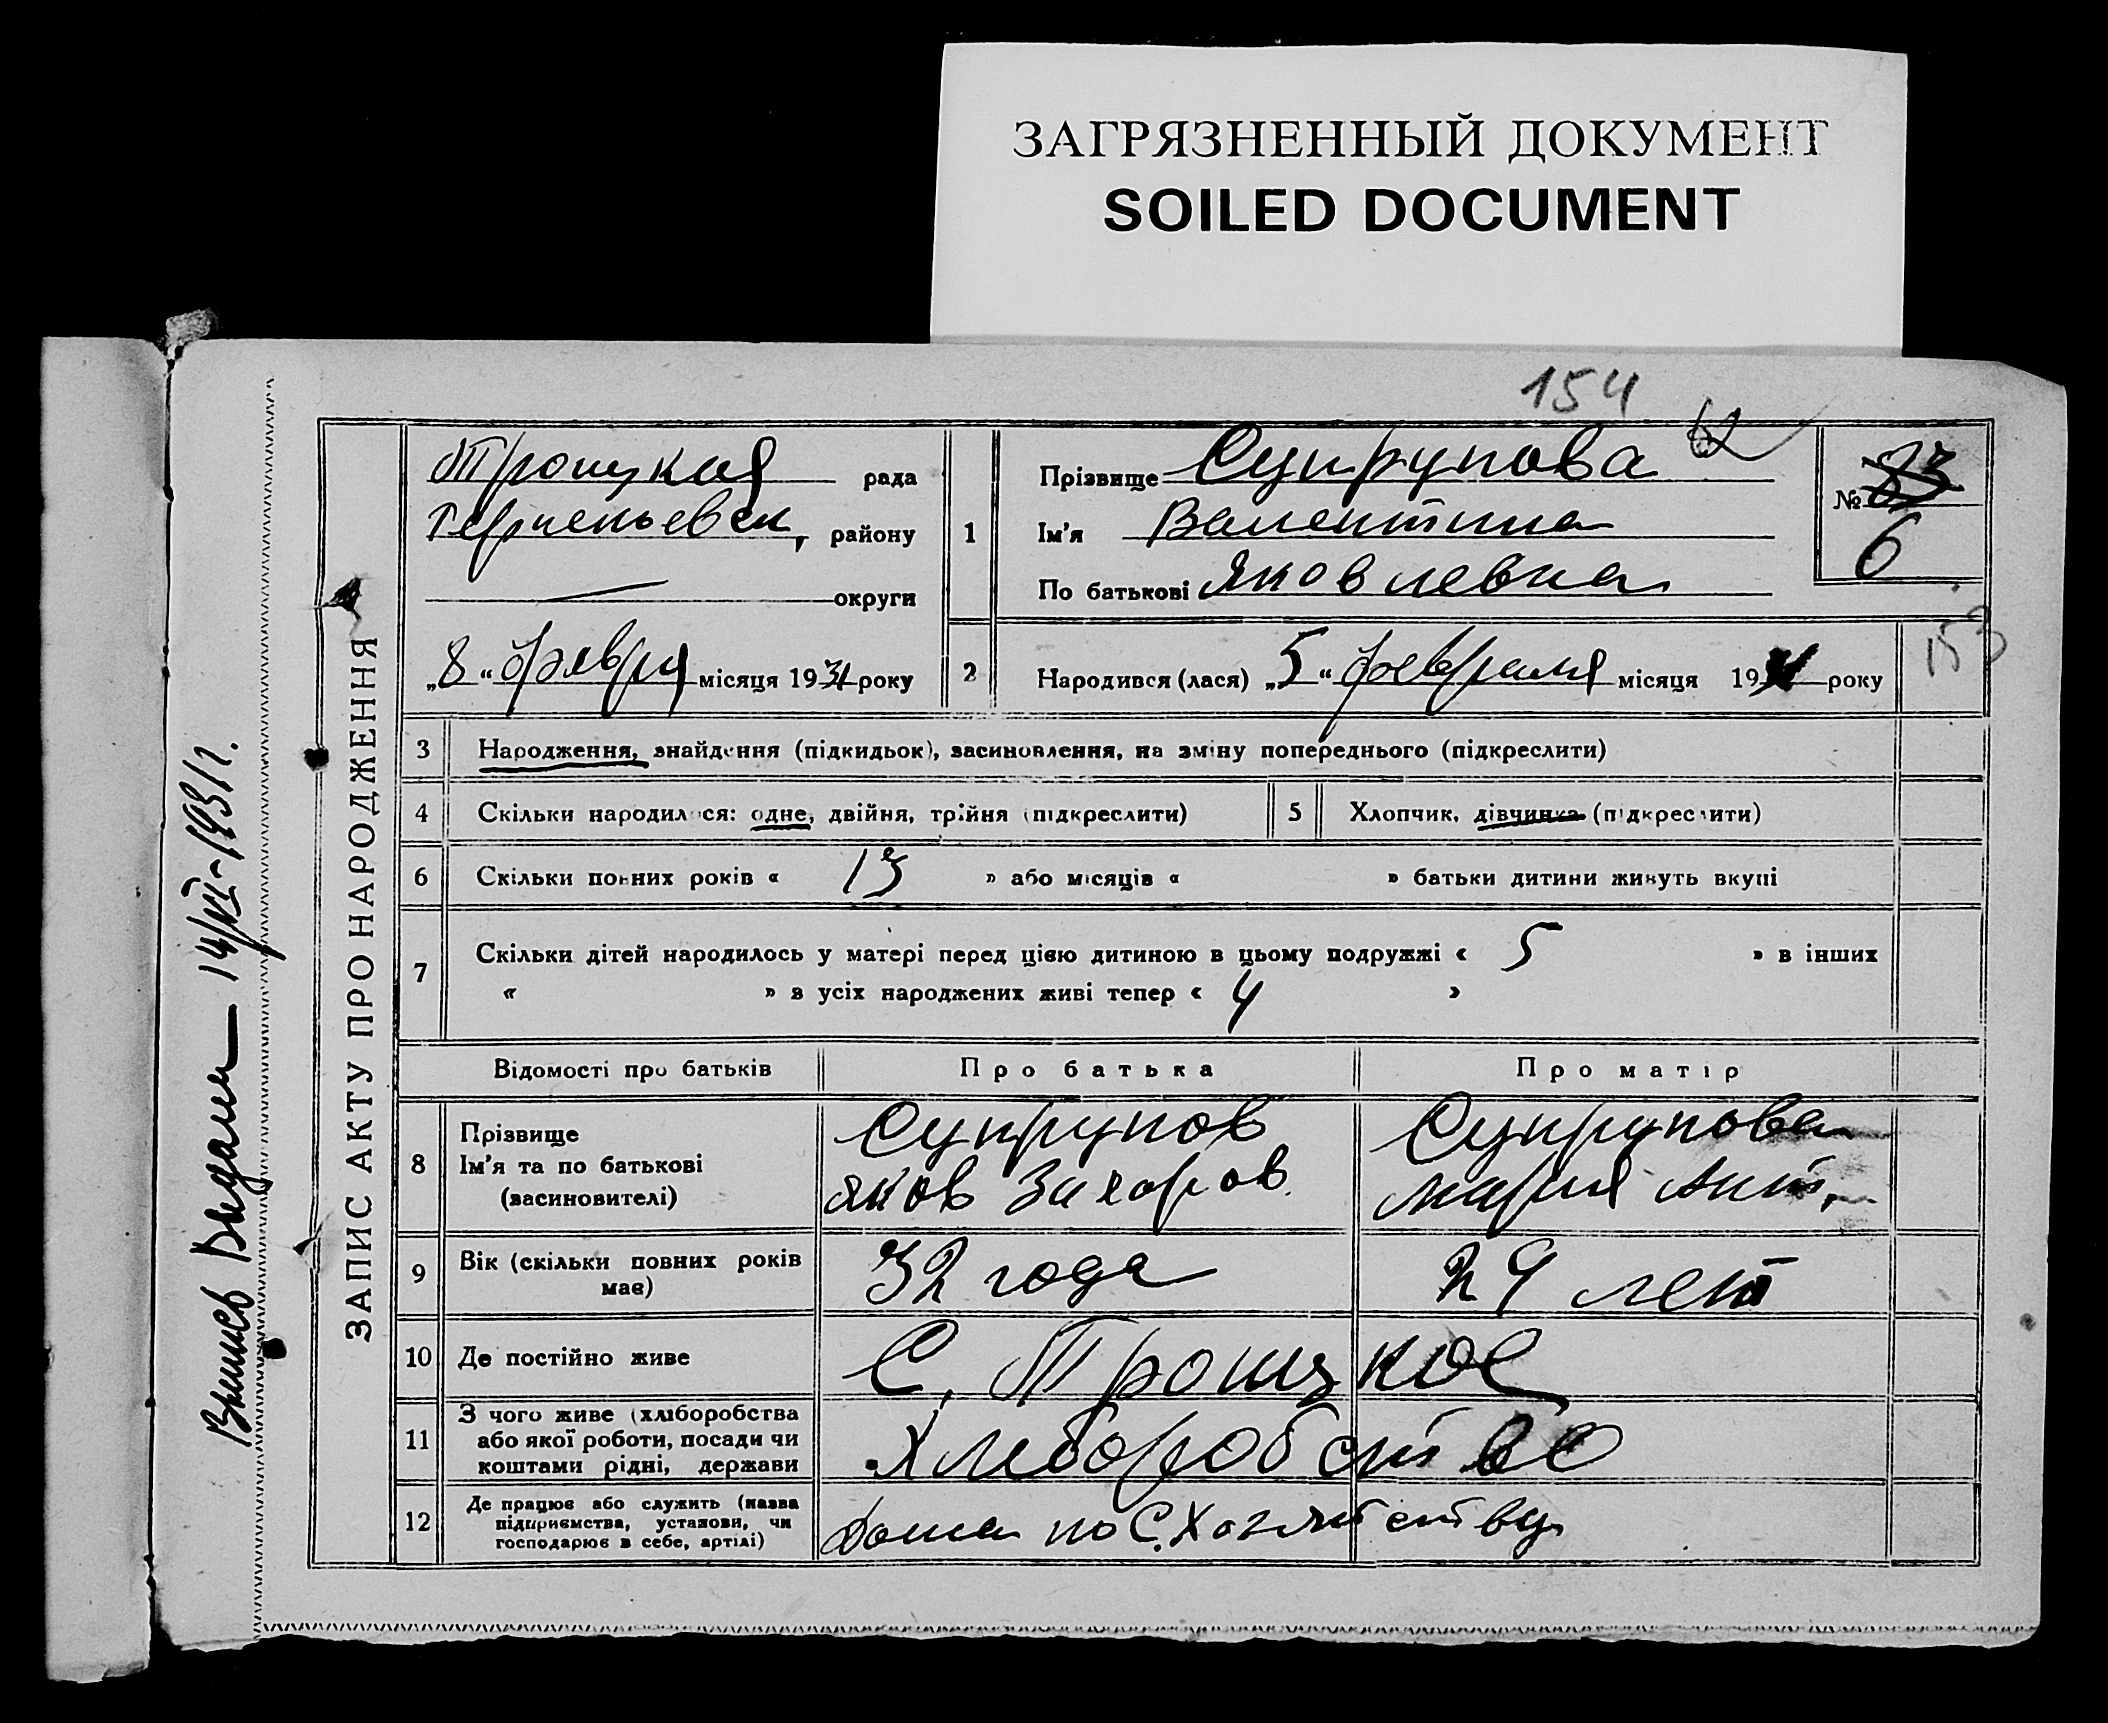 ЗАГРЯЗНЕННЫЙ ДОКУМЕНТ
SOILED DOCUMENT
154
Троицкая рада
району
округи
„8“ февря місяця 1931 року
1
Прізвище Супрунова
Ім'я Валентина
По батькові Яковлевна
№ 83
6
153
2 Народився (лася) „5“ февраля місяця 1931 року
ЗАПИС АКТУ ПРО НАРОДЖЕННЯ
3 Народження, знайдення (підкидьок), засиновлення, на зміну попереднього (підкреслити)
4 Скільки народилося: одне, двійня, трійня (підкреслити) 5 Хлопчик, дівчинка (підкреслити)
6 Скільки повних років « 13 » або місяців « » батьки дитини живуть вкупі
7 Скільки дітей народилось у матері перед цією дитиною в цьому подружжі « 5 » в інших
« » з усіх народжених живі тепер « 4 »
Відомості про батьків Про батька Про матір
8 Прізвище
Ім'я та по батькові
(засиновителі)
Супрунов
Яков Захаров.
Супрунова
Мария Ант.
9 Вік (скільки повних років має) 32 года 29 лет
10 Де постійно живе С. Троицкое
11 З чого живе (хліборобства
або якої роботи, посади чи
коштами рідні, держави
Хлеборобство
12 Де працює або служить (назва
підприємства, установи, чи
господарює в себе, артілі)
дома по С. Хозяйству
Выдана 14/VI-1931 г.